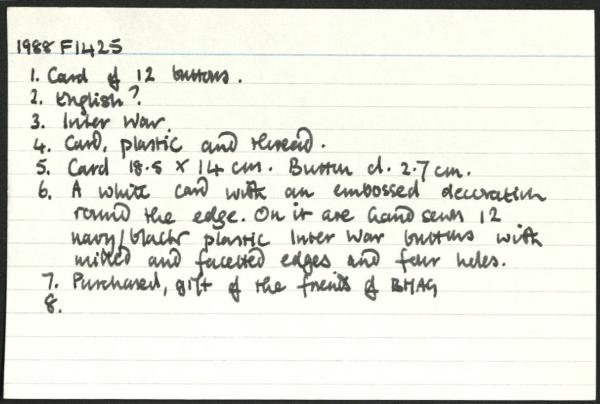 1988 F1425
1. Card of 12 buttons.
2. English?
3. Inter War.
4. Card, plastic and thread.
5. Card 18.5 x 14 cm. Button d. 2.7 cm.
6. A white card with an embossed decoration
round the edge. On it are hand sewn 12
navy/black plastic Inter War buttons with
milled and facetted edges and four holes.
7. Purchased, gift of the friends of BHAG
8.